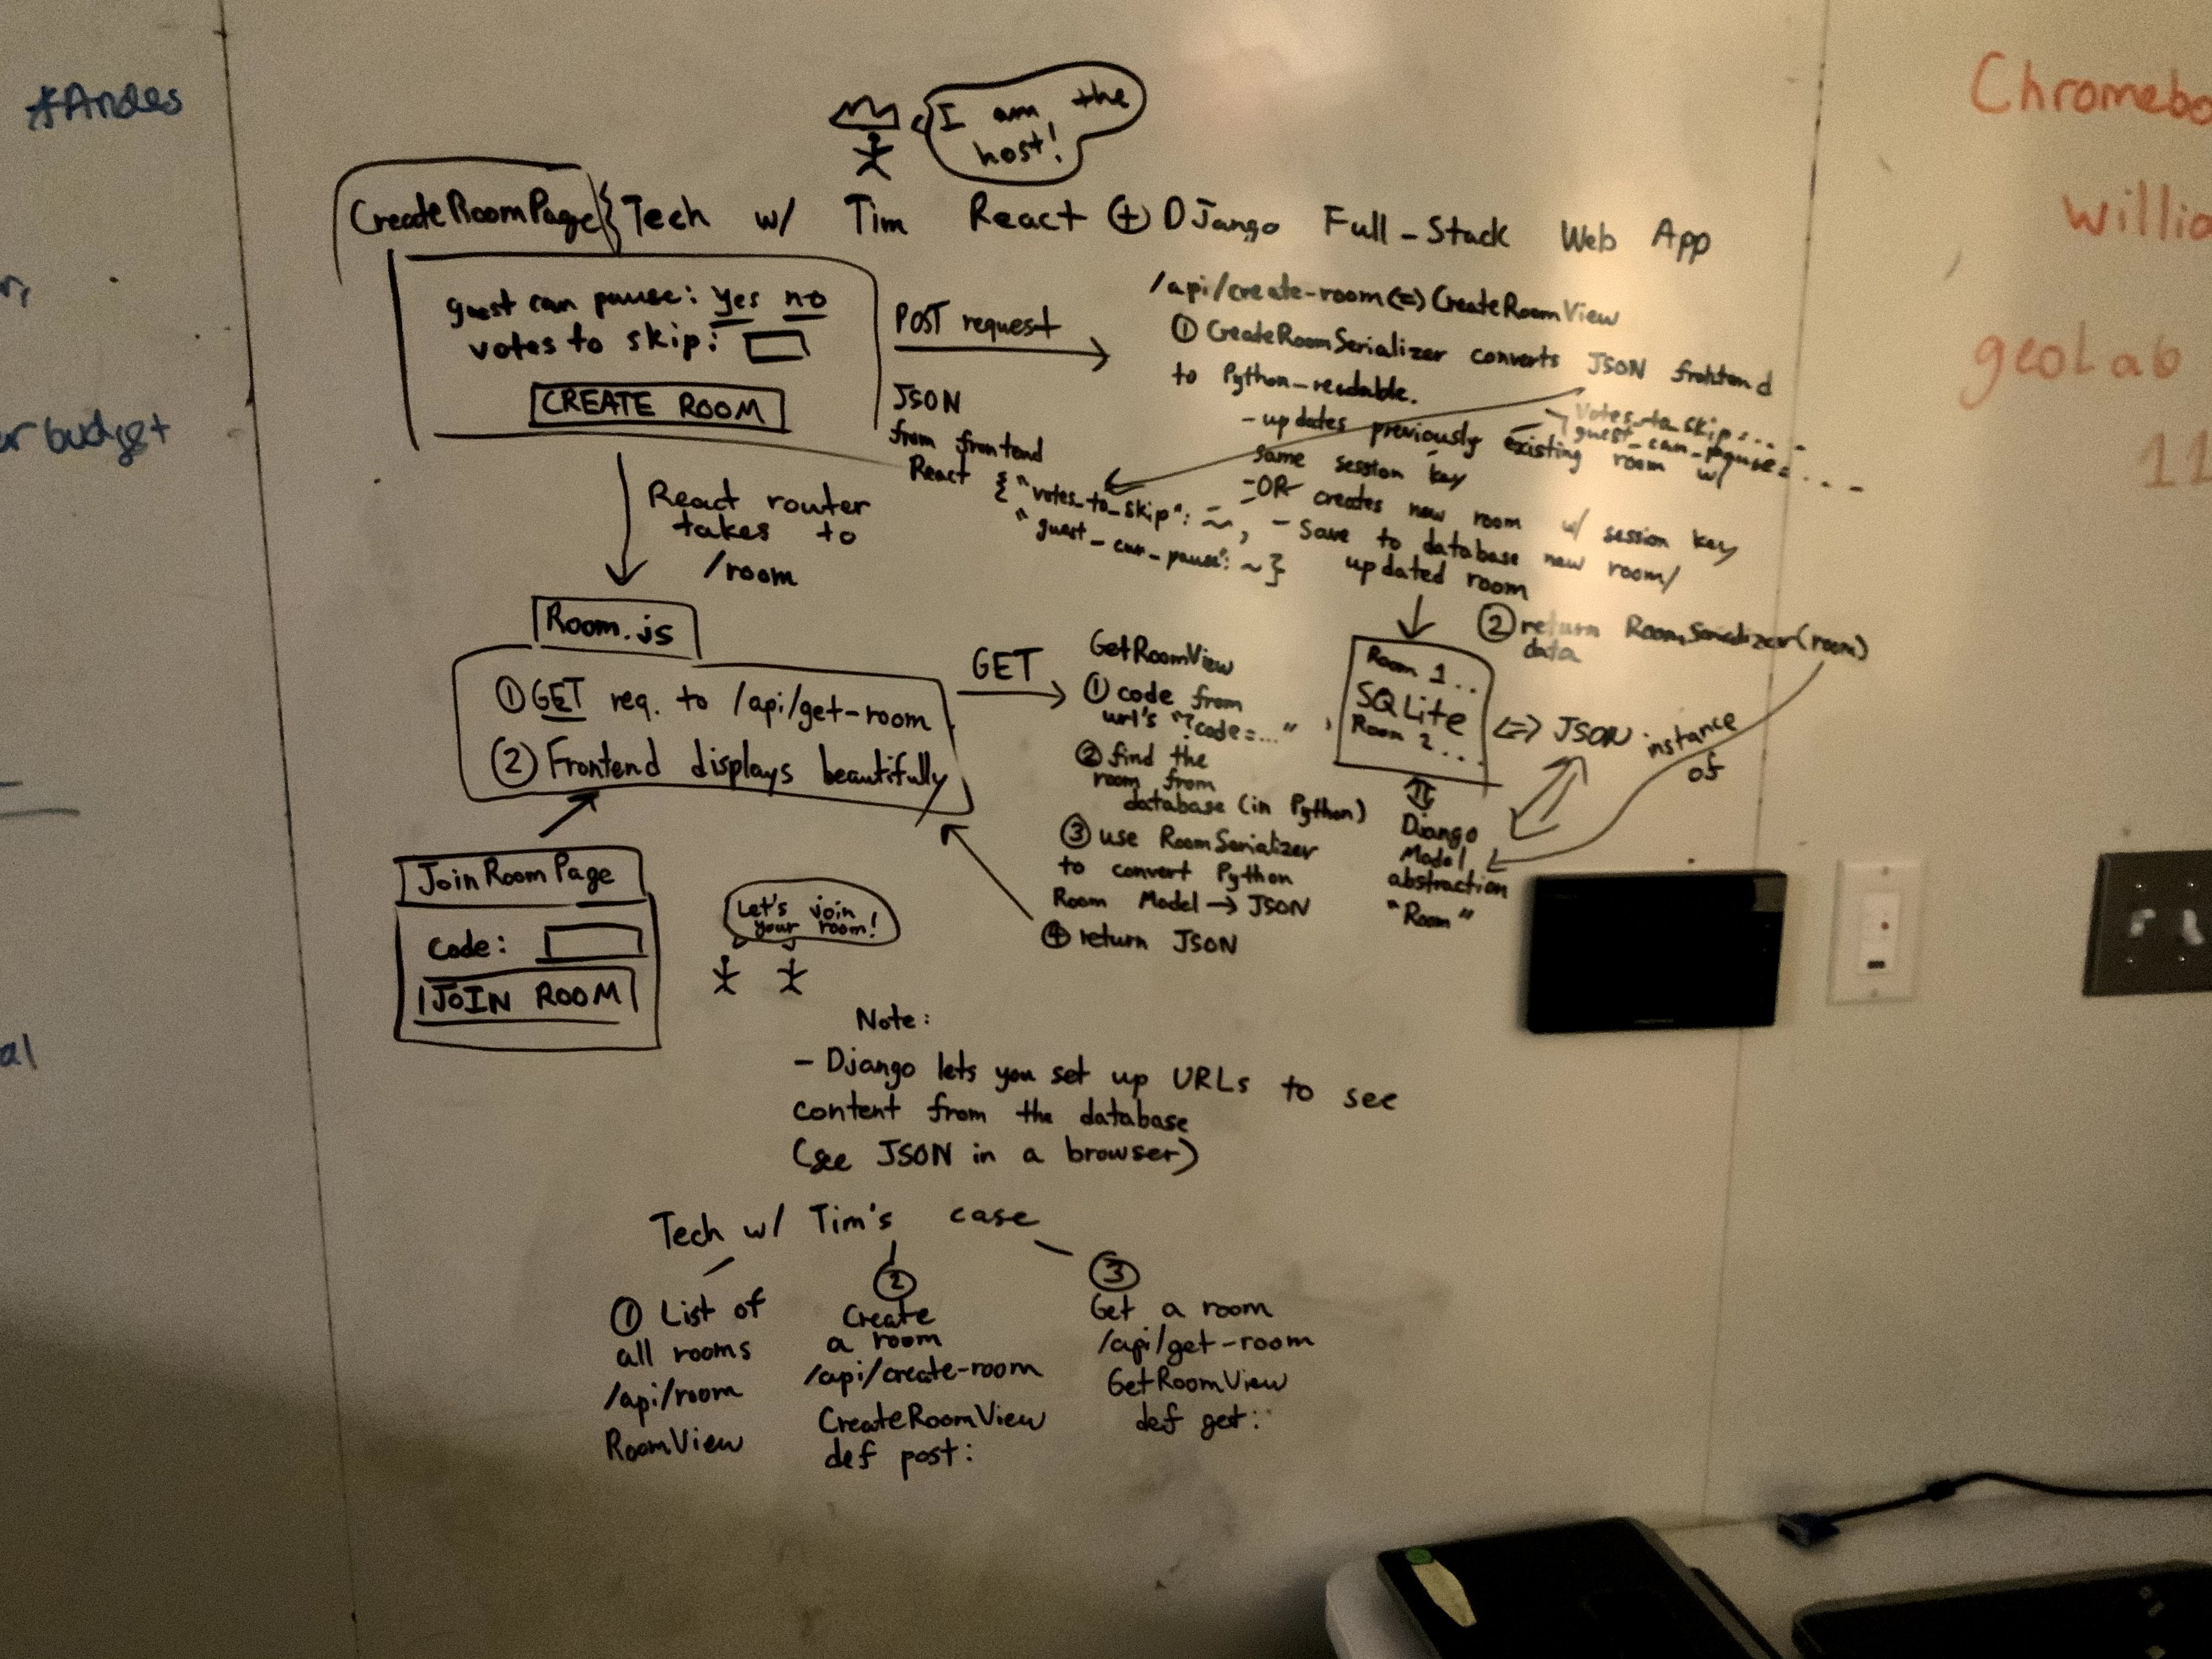 *Andes
budget
I am the
host!
CreateRoomPage
Tech w/ Tim React + DJango Full-Stack Web App
guest can pause: yes no
votes to skip:
CREATE ROOM
POST request
JSON
from frontend
React { "votes_to_skip": ~,
"guest_can_pause": ~ }
/api/create-room (=) CreateRoomView
① CreateRoomSerializer converts JSON frontend
to Python-readable.
votes_to_skip = ...
guest_can_pause = ...
- updates previously existing room w/
same session key
- OR creates new room w/ session key
- Save to database new room/
updated room
② return RoomSerializer(room)
data
React router
takes to
/room
Room.js
① GET req. to /api/get-room
② Frontend displays beautifully
GET
GetRoomView
① code from
url's "?code=..."
② find the
room from
database (in Python)
③ use RoomSerializer
to convert Python
Room Model → JSON
④ return JSON
Room 1..
SQLite
Room 2...
<=> JSON
instance
of
Django
Model
abstraction
"Room"
JoinRoomPage
Code:
JOIN ROOM
Let's join
your room!
Note:
- Django lets you set up URLs to see
content from the database
(see JSON in a browser)
Tech w/ Tim's case
① List of
all rooms
/api/room
RoomView
②
Create
a room
/api/create-room
CreateRoomView
def post:
③
Get a room
/api/get-room
GetRoomView
def get:
geoLab
11